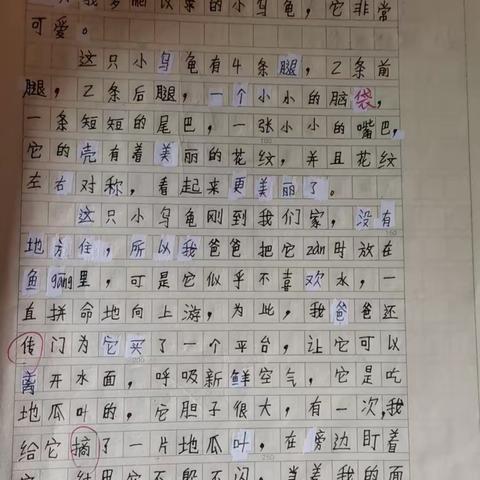 我爹爹以来的小乌龟，它非常
可爱。
这只小乌龟有4条腿，2条前
腿，2条后腿，一个小小的脑袋，
一条短短的尾巴，一张小小的嘴巴，
它的壳有着美丽的花纹，并且花纹
左右对称，看起来更美丽了。
这只小乌龟刚到我们家，没有
地方住，所以我爸爸把它zàn时放在
鱼gāng里，可是它似乎不喜欢水，一
直拼命地向上游，为此，我爸爸还
传门为它买了一个平台，让它可以
离开水面，呼吸新鲜空气，它是吃
地瓜叶的，它胆子很大，有一次，我
给它摘了一片地瓜叶，在旁边盯着
它，结果它不躲不闪，当着我的面